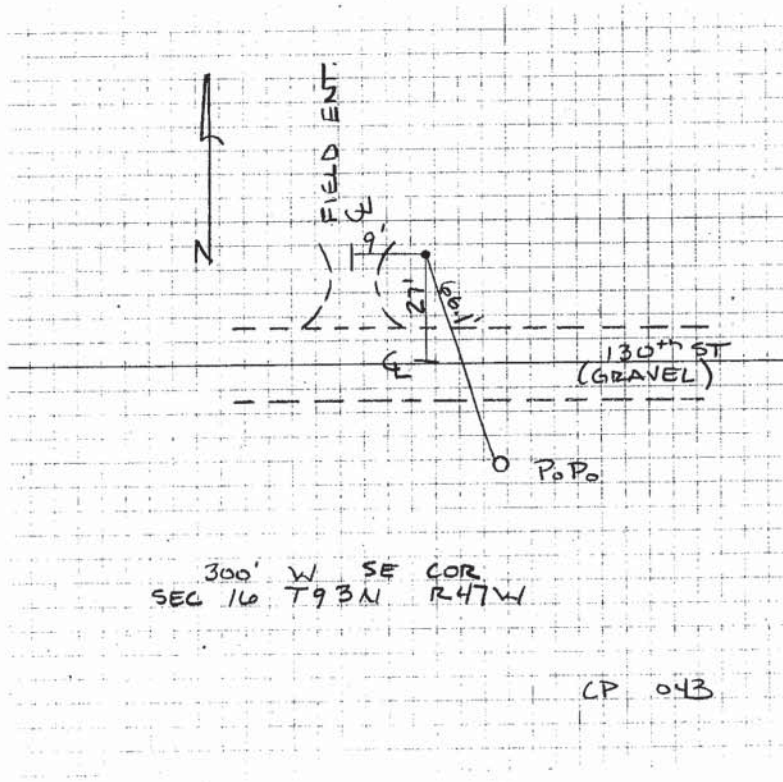 FIELD ENT.
℄
9'
N
27'
66.1'
℄
130th ST
(GRAVEL)
PoPo
300' W SE COR
SEC 16 T93N R47W
CP 043